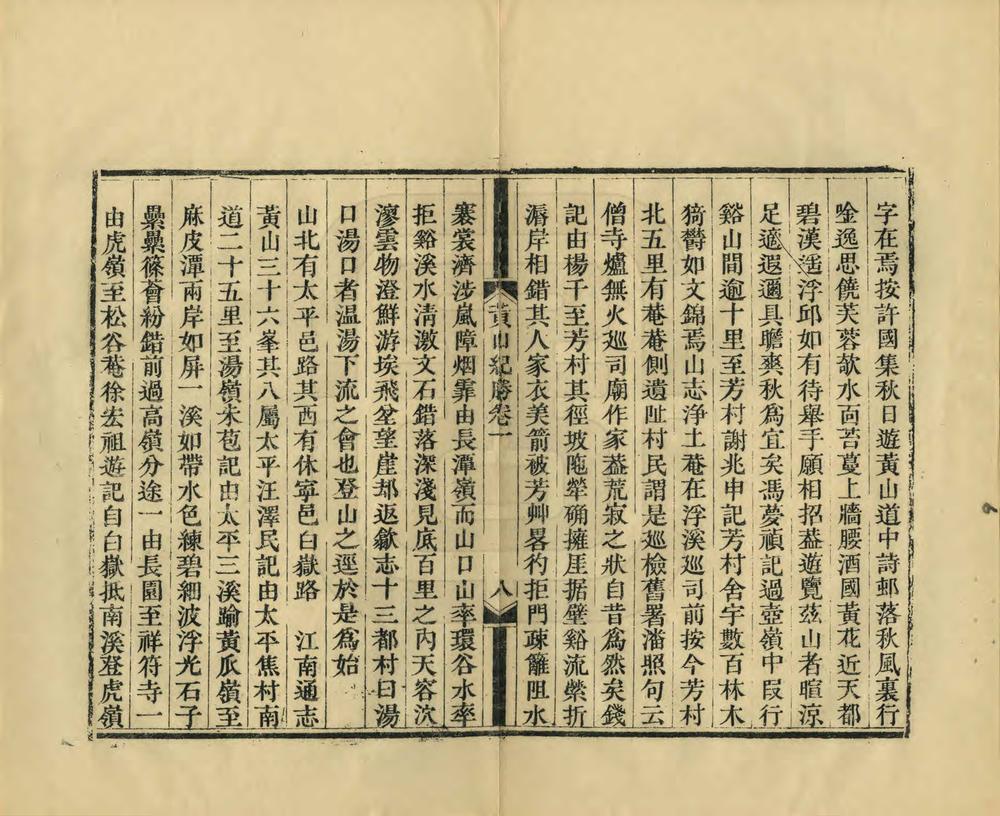 字在焉按許國集秋日遊黃山道中詩郵落秋風裏行
唫逸思饒芙蓉欹水面苔蔓上牆腰酒國黃花近天都
碧漢遥浮邱如有待舉手願相招葢遊覽茲山者暄涼
足適遐邇具瞻爽秋爲宜矣馮夢禎記過壺嶺中叚行
谿山間逾十里至芳村謝兆申記芳村舍宇數百林木
猗欝如文錦焉山志浄土菴在浮溪巡司前按今芳村
北五里有菴菴側遺阯村民謂是巡檢舊署潘照句云
僧寺爐無火巡司廟作家葢荒寂之狀自昔爲然矣錢
記由楊干至芳村其徑坡陁犖确擁厓据壁谿流縈折
漘岸相錯其人家衣美箭被芳艸畧彴拒門疎籬阻水
黃山紀勝卷一
八
褰裳濟涉嵐障烟霏由長潭嶺而山口山率環谷水率
拒谿溪水清激文石錯落深淺見底百里之内天容泬
漻雲物澄鮮游埃飛坌望崖却返歙志十三都村曰湯
口湯口者温湯下流之會也登山之逕於是爲始
山北有太平邑路其西有休寧邑白嶽路　江南通志
黃山三十六峯其八屬太平汪澤民記由太平焦村南
道二十五里至湯嶺朱苞記由太平三溪踰黃瓜嶺至
麻皮潭兩岸如屏一溪如帶水色練碧細波浮光石子
纍纍篠薈紛錯前過高嶺分途一由長園至祥符寺一
由虎嶺至松谷菴徐宏祖遊記自白嶽抵南溪登虎嶺